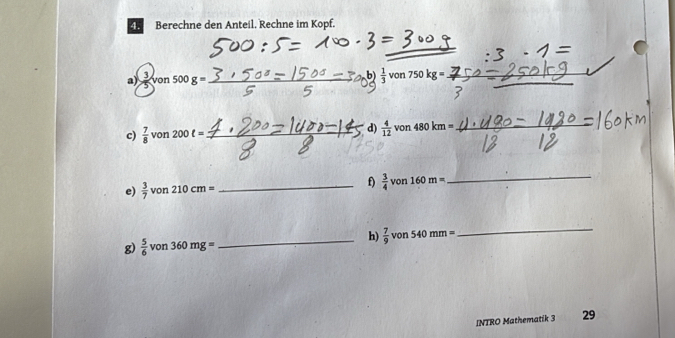 4. Berechne den Anteil. Rechne im Kopf.
500 : 5 = 100 · 3 = 300 g
: 3 · 1 =
a) 3/5 von 500 g = 3 · 500/5 = 1500/5 = 300g b) 1/3 von 750 kg = 750/3 = 250 kg ✓
c) 7/8 von 200 ℓ = 7 · 200/8 = 1400/8 = 175 d) 4/12 von 480 km = 4 · 480/12 = 1920/12 = 160 km
e) 3/7 von 210 cm = f) 3/4 von 160 m =
g) 5/6 von 360 mg = h) 7/9 von 540 mm =
INTRO Mathematik 3 29